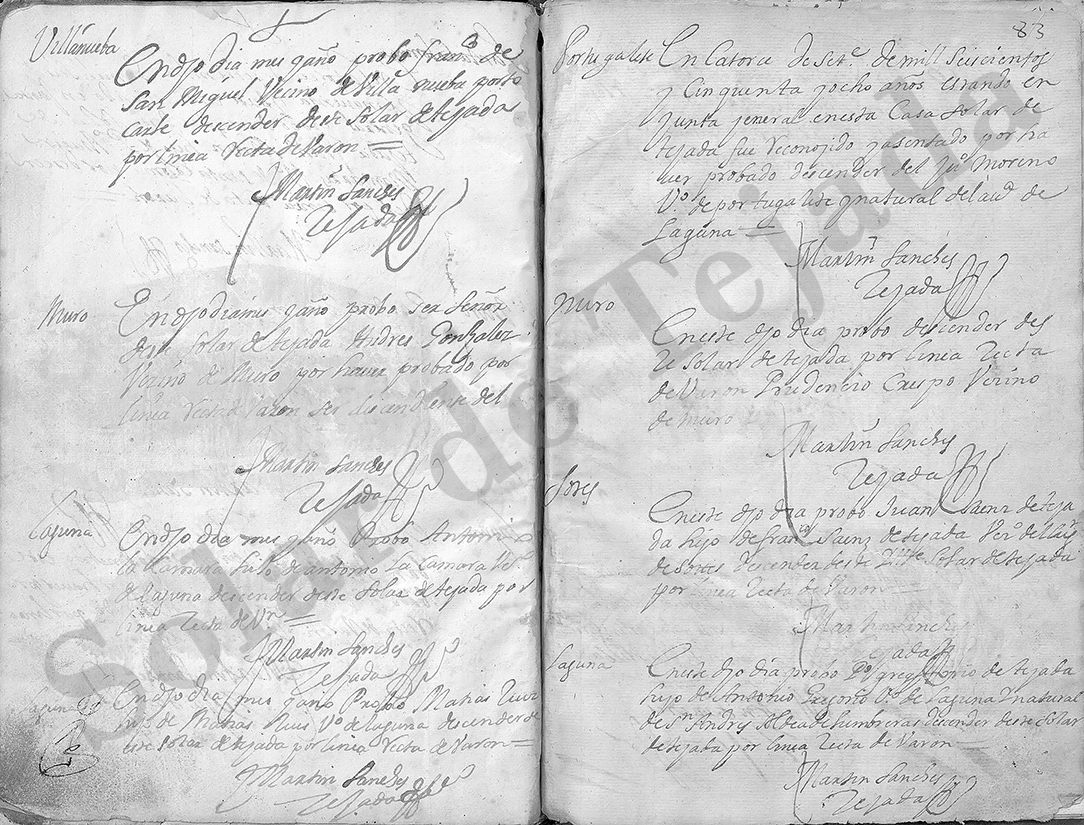 Villanueba
En dho dia mes y año probo franco de
San Miguel Vecino de Villa nueba por to
carle descender deste Solar de tejada
por linea Recta de Varon =
Martin Sanches
Tejada
Muro
En dho dia mes y año probo ser Señor
deste Solar de tejada Andres Gonçalez
Vecino de Muro por haver probado por
linea recta Varon ser descendiente del
Martin Sanches
Tejada
Laguna
En dho dia mes y año Probo Antonio
la Camara hijo de antonio La Camara Vo
de laguna descender deste Solar de tejada por
linea Recta de Vn =
Martin Sanches
Tejada
Laguna
En dho dia mes y año Probo Matias Ruiz
hijo de Matias Ruis Vo de laguna descender de
este Solar de tejada por linea Recta de Varon =
Martin Sanches
Tejada
83
Portugalete
En Catorce de Sete de mill Seiscientos
y Cinquenta y ocho años estando en
Junta jeneral en esta Casa Solar de
tejada fue Reconojido y asentado por ha
uer probado descender del Ju Moreno
Vo de portugalete y natural del de
Laguna =
Martin Sanches
Tejada
Muro
En este dho dia probo descender des
te Solar de tejada por linea Recta
de Varon Prudencio Crespo Vecino
de muro
Martin Sanches
Tejada
Sotes
En este dho dia probo Juan Saenz de teja
da hijo de franco Saenz de tejada Veo de la
de Sotes descender deste Solar de tejada
por linea Recta de Varon
Martin Sanches
Tejada
Laguna
En este dho dia probo Po gregorio de tejada
hijo de Antonio Gregorio Vo de Laguna y natural
de Sn Andres Aldea de lumbreras descender deste Solar
de tejada por linea Recta de Varon =
Martin Sanches
Tejada
Solar de Tejada